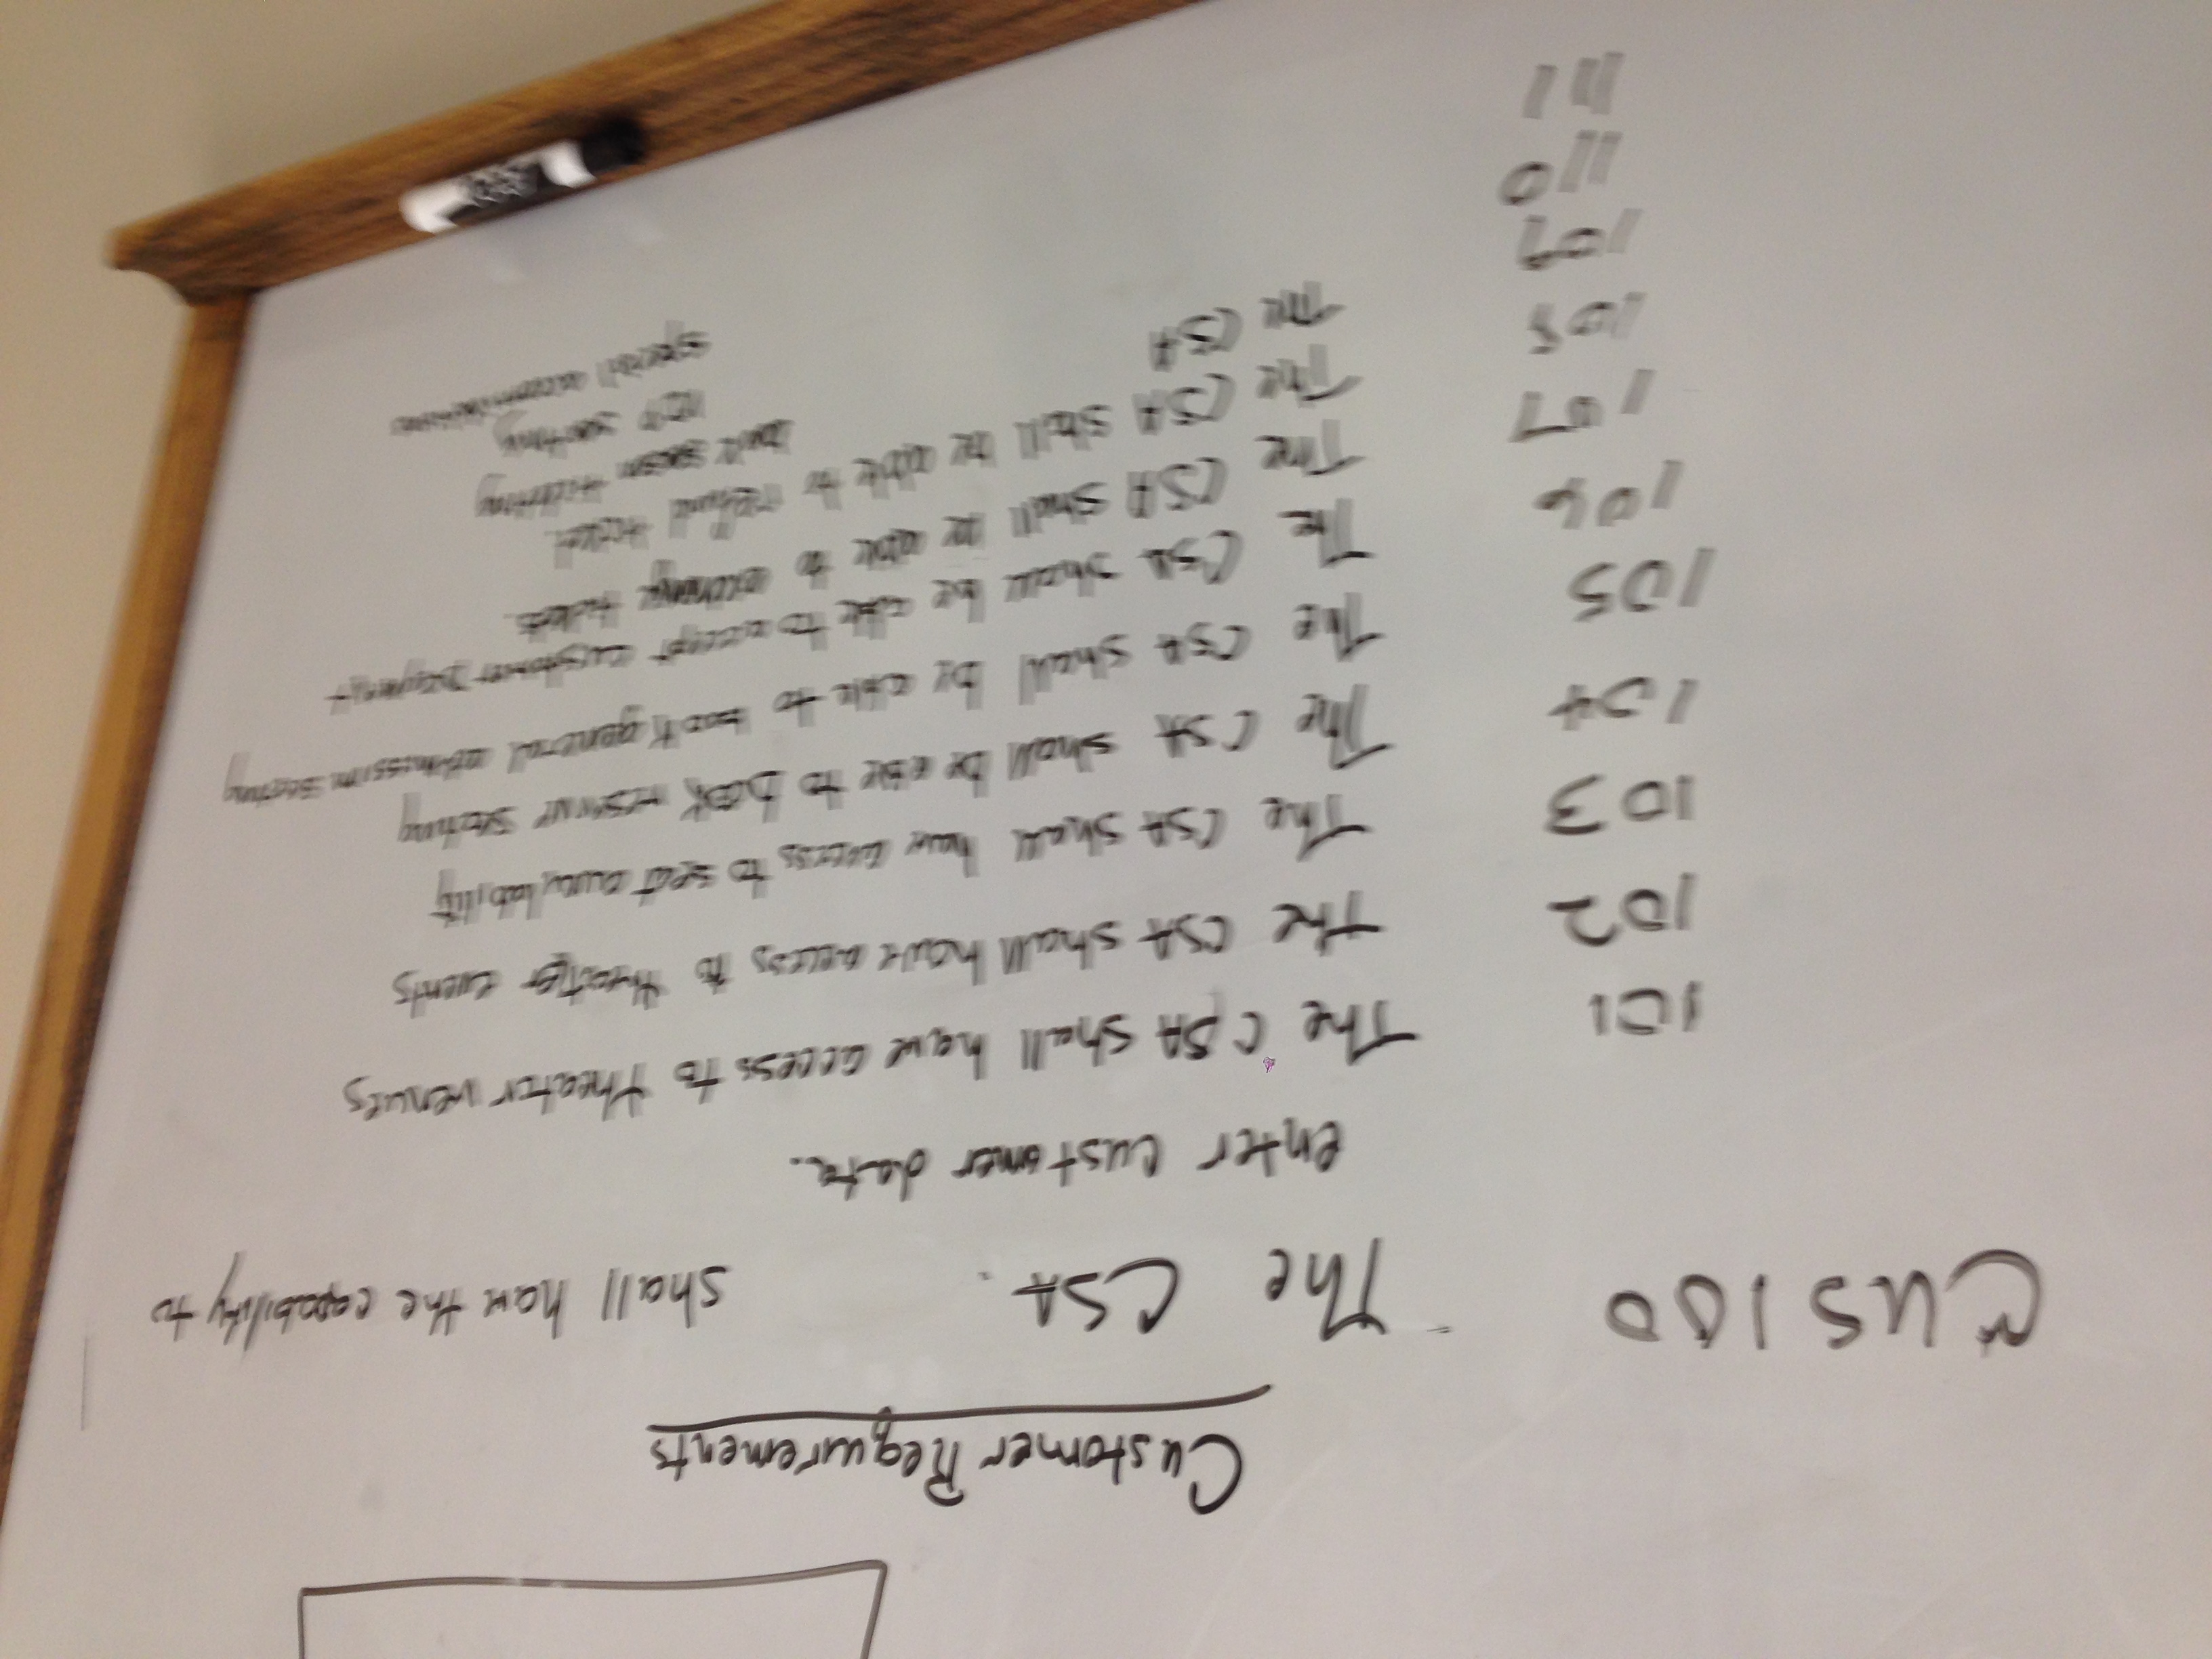 Customer Requirements
CUS 100 The CSA. shall have the capability to
enter customer data.
101 The CSA shall have access to theater venues
102 The CSA shall have access to theater events
103 The CSA shall have access to seat availability
104 The CSA shall be able to book reserve seating
105 The CSA shall be able to book general admission seating
106 The CSA shall be able to accept customer payment
107 The CSA shall be able to exchange tickets.
108 The CSA shall be able to refund ticket.
109 The CSA book season ticketing
110 seating
111 special